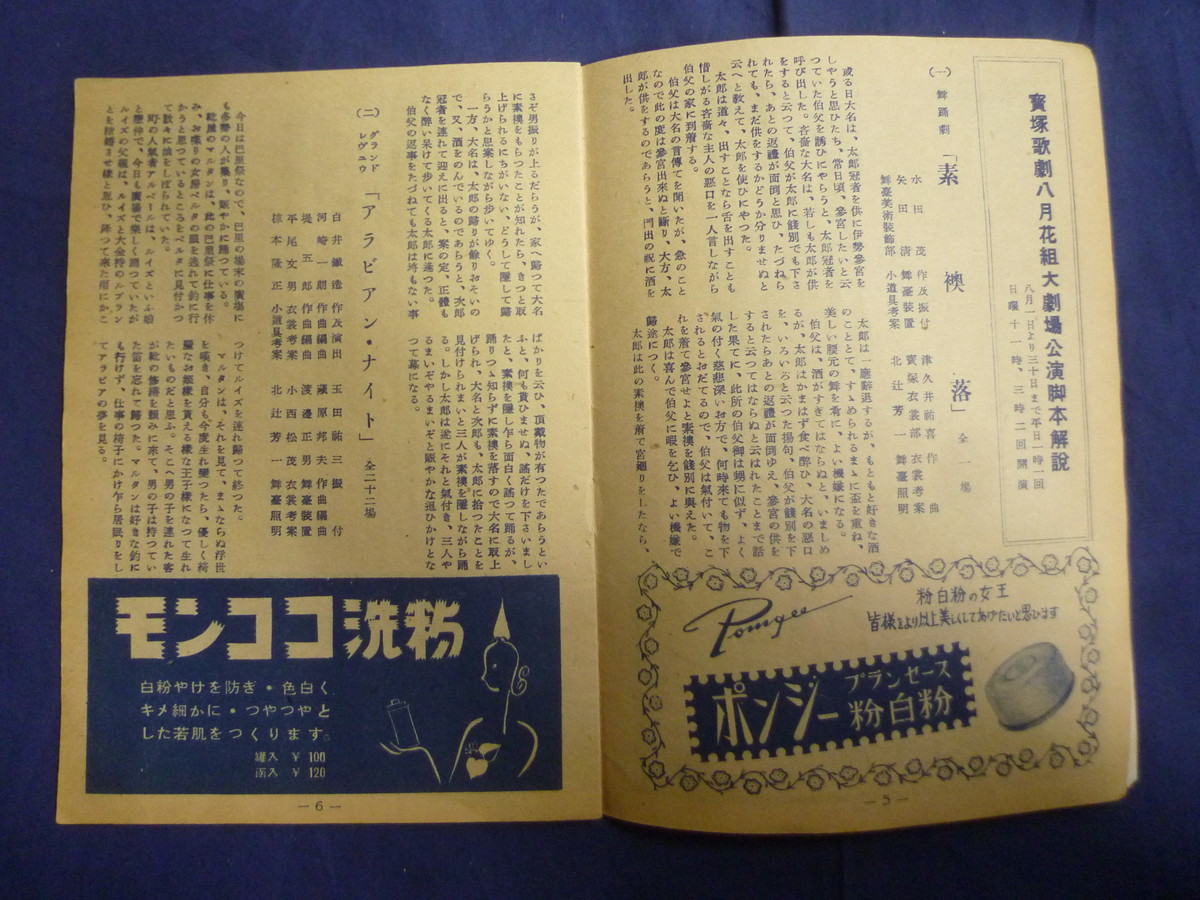 寳塚歌劇八月花組大劇場公演脚本解説
八月一日より三十日まで年日一時一回
日曜十一時、三時二回開演
(一) 舞踊劇 「素襖落」 全一場
水田 茂 作及振付 津久井祐喜 作曲
矢田 清 舞臺装置 寳塚衣裳部 衣裳考案
舞臺美術装飾部 小道具考案 北辻芳一 舞臺照明
或る日大名は、太郎冠者を供に伊勢參宮を
しやうと思ひたち、常日頃、參宮したいと云
つていた伯父を誘ひにやらうと、太郎冠者を
呼び出した。吝嗇な大名は、若しも太郎が供
をすると云つて、伯父が太郎に餞別でも下さ
れたら、あとの返禮が面倒と思ひ、たづねら
れても、まだ供をするかどうか分りませぬと
云へと教えて、太郎を使ひにやつた。
太郎は道々、出すことなら舌を出すことも
惜しがる吝嗇な主人の惡口を一人言しながら
伯父の家に到着する。
伯父は大名の言傳てを聞いたが、急のこと
なので此の度は參宮出來ぬと斷り、大方、太
郎が供をするのであらうと、門出の祝に酒を
出した。
太郎は一應辭退するが、もともと好きな酒
のこととて、すゝめられるまゝに盃を重ね、
美しい腰元の舞を肴に、よい機嫌になる。
伯父は、酒がすぎてはならぬと、いましめ
るが、太郎はかまはず食べ醉ひ、大名の惡口
を、いろいろと云つた揚句、伯父が餞別を下
されたらあとの返禮が面倒ゆえ、參宮の供を
すると云つてはならぬと云はれたことまで話
した果てに、此所の伯父御は甥に似ず、よく
氣の付く慈悲深いお方で、何時來ても物を下
されるとおだてるので、伯父は氣付いて、こ
れを着て參宮せよと素襖を餞別に與えた。
太郎は喜んで伯父に暇を乞ひ、よい機嫌で
歸途につく。
太郎は此の素襖を着て宮廻りをしたなら、
粉白粉の女王
皆様をより以上美しくしてあげたいと思ひます
Pongee
ポンジー
プランセース
粉白粉
— 5 —
さぞ男振りが上るだらうが、家へ歸つて大名
に素襖をもらつたことが知れたら、きつと取
上げられるにちがいない、どうして隱して歸
らうかと思案しながら歩いてゆく。
一方、大名は、太郎の歸りが餘りおそいの
で、又、酒をのんでいるのであらうと、次郎
冠者を連れて迎えに出ると、案の定、正體も
なく醉い呆けて歩いてくる太郎に逢つた。
伯父の返事をたづねても太郎は埓もない事
ばかりを云ひ、頂戴物が有つたであらうとい
ふと、何も貰ひませぬ、謠だけを下さいまし
たと、素襖を隱し乍ら面白く謠つて踊るが、
踊りつゝ知らずに素襖を落すので大名に取上
げられ、大名と次郎も、太郎に拾つたことを
見付けられまいと三人が素襖を隱しながら踊
る。しかし太郎は遂にそれと氣付き、三人や
るまいぞやるまいぞと賑やかな追ひかけとな
つて幕になる。
(二) グランド レヴユウ 「アラビアン・ナイト」 全二十二場
白井鐵造 作及演出 玉田祐三 振付
河崎一朗 作曲編曲 藏原邦夫 作曲編曲
堤五郎 作曲編曲 渡邊正男 舞臺装置
平尾文男 衣裳考案 小西松茂 衣裳考案
椋本隆正 小道具考案 北辻芳一 舞臺照明
今日は巴里祭なので、巴里の場末の廣場に
も多勢の人が集り、賑やかに踊つている。
靴屋のマルタンは、此の巴里祭に仕事を休
み、お喋りの女房ベルタの眼を逃れて釣に行
かうと思つているところをベルタに見付かつ
て散々に油をしぼられていた。
町の人氣者アルベールは、ルイズといふ娘
と戀仲で、今日も廣場で樂しく踊つていたが
ルイズの父親は、ルイズと大金持のルブラン
とを結婚させ樣と思ひ、降つて來た雨にかこ
つけてルイズを連れ歸つて終つた。
マルタンは、それを見て、まゝならぬ浮世
を嘆き、自分も今度生れ變つたら、優しく綺
麗なお姫樣を貰える樣な王子樣になつて生れ
たいものだと思ふ。そこへ男の子を連れた客
が靴の修繕を頼みに來て、男の子は持つてい
た笛を忘れて歸つた。マルタンは好きな釣に
も行けず、仕事の椅子にかけ乍ら居眠りをし
てアラビアの夢を見る。
モンココ洗粉
白粉やけを防ぎ・色白く
キメ細かに・つやつやと
した若肌をつくります。
罐入 ¥100
函入 ¥120
— 6 —